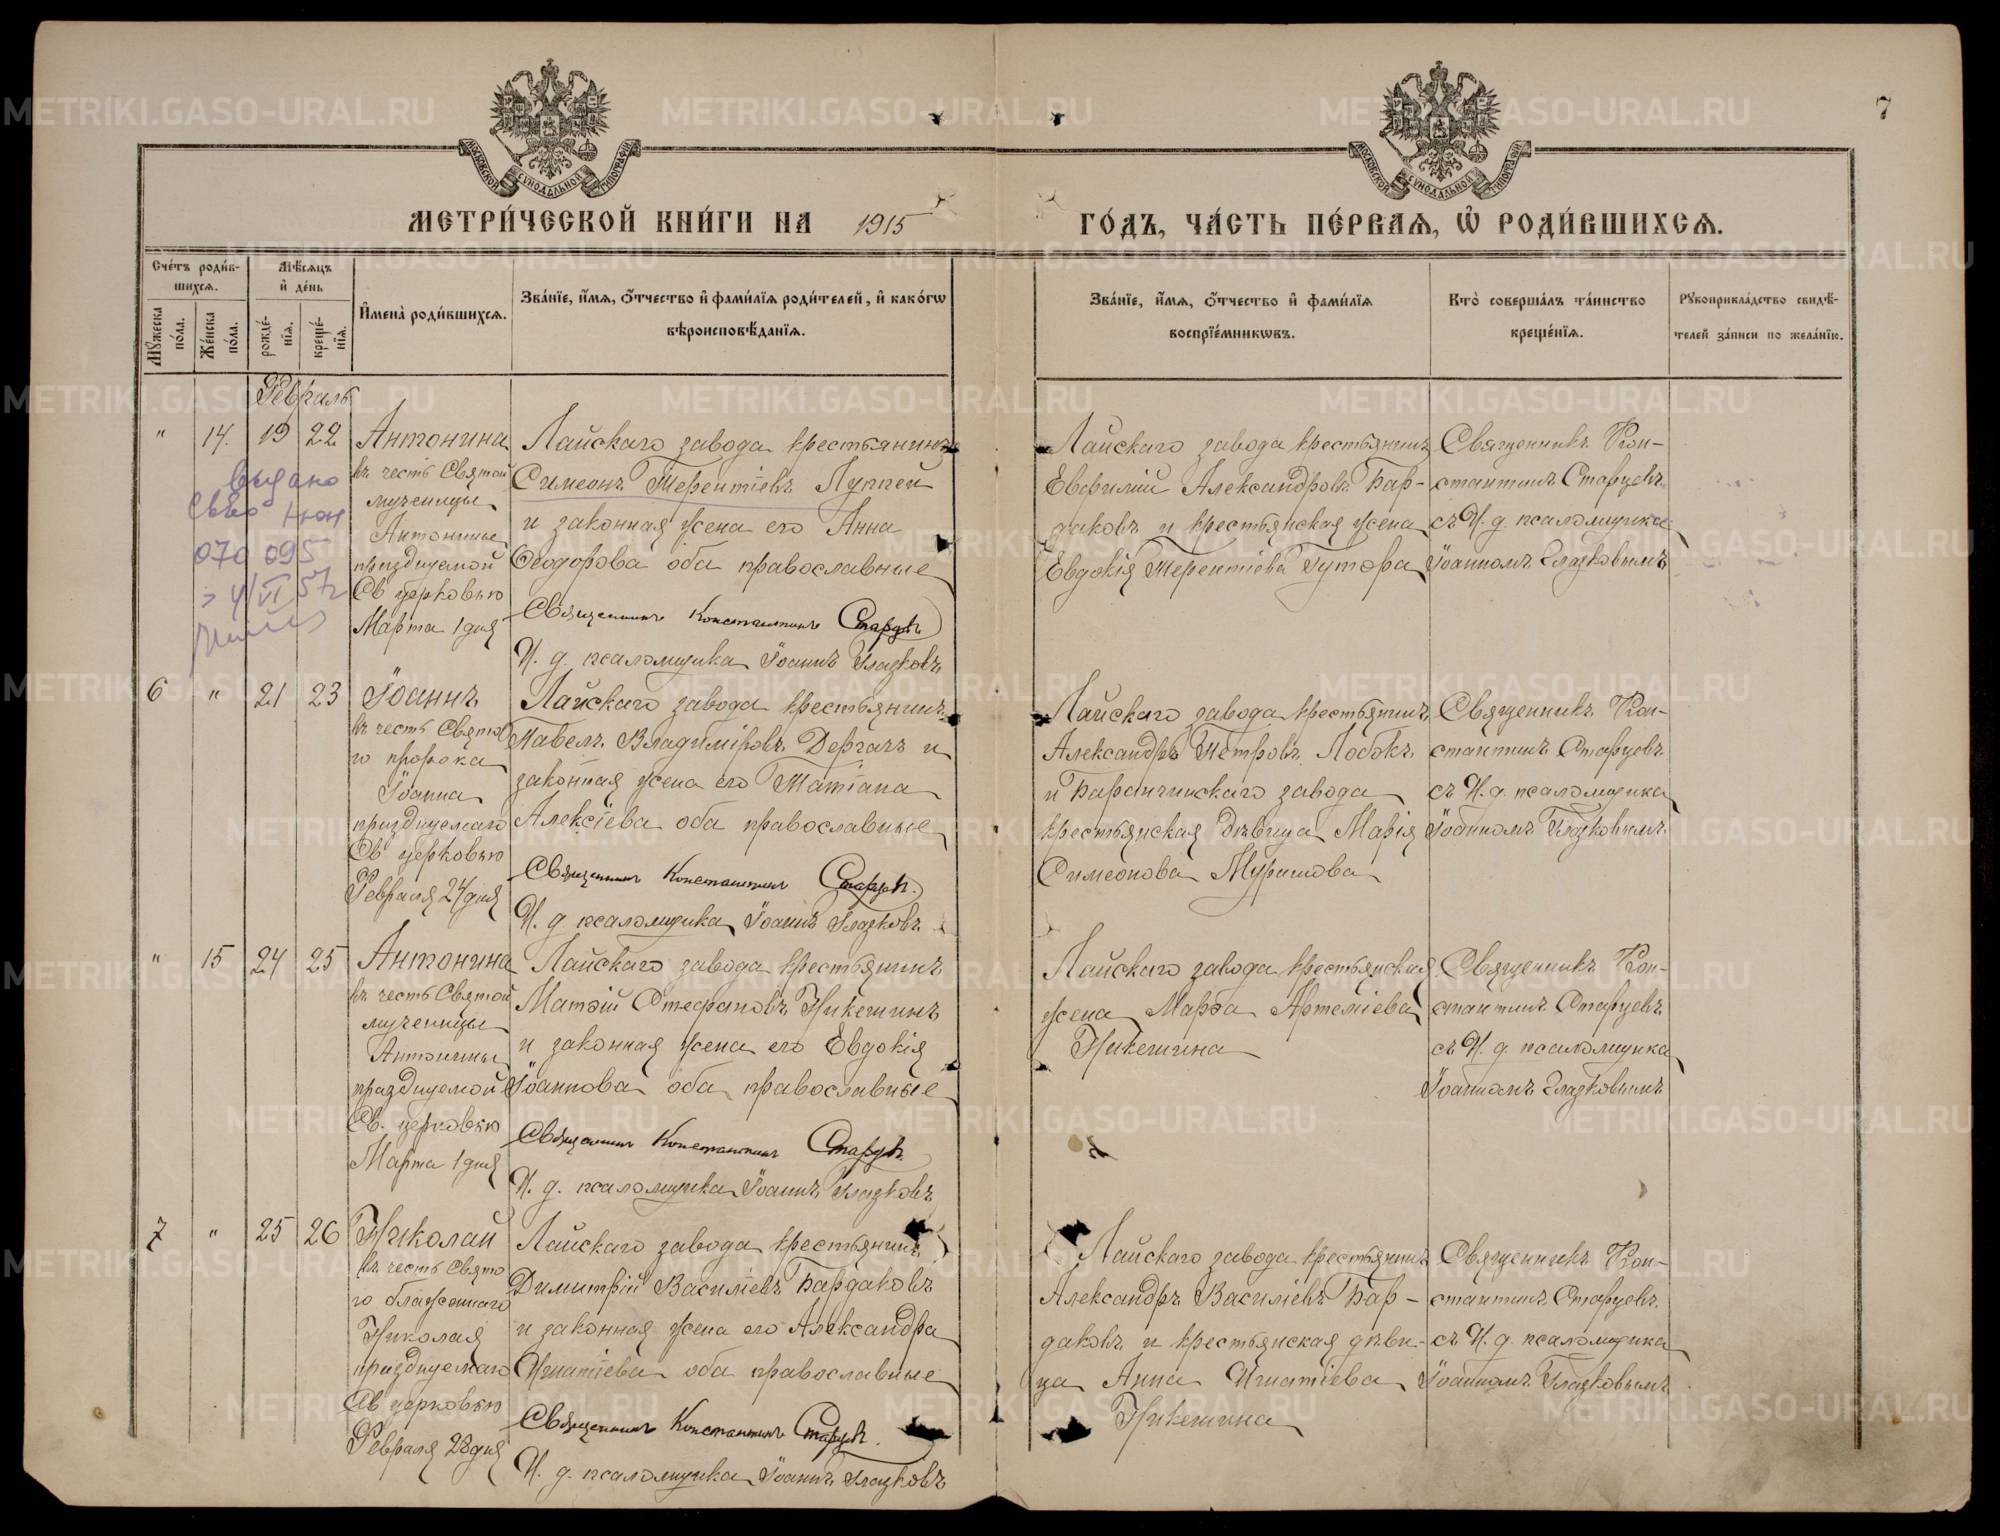 7
МОСКОВСКОЙ СѴНОДАЛЬНОЙ ТИПОГРАФІИ
МОСКОВСКОЙ СѴНОДАЛЬНОЙ ТИПОГРАФІИ
МЕТРИ́ЧЕСКОЙ КНИ́ГИ НА 1915 ГО́ДЪ, ЧА́СТЬ ПЕ́РВАѦ, Ѡ҆ РОДИ́ВШИХСѦ.
Сче́тъ роди́в-
шихсѧ.
Мꙋ́жеска по́ла.
Же́нска по́ла.
Мѣ́сѧцъ
и҆ де́нь
рожде́-
нїѧ.
креще́-
нїѧ.
И҆мена̀ роди́вшихсѧ.
Зва́нїе, и҆́мѧ, ѻ҆́тчество и҆ фами́лїѧ роди́телей, и҆ како́гѡ
вѣроисповѣ́данїѧ.
Зва́нїе, и҆́мѧ, ѻ҆́тчество и҆ фами́лїѧ
воспрїе́мникѡвъ.
Кто̀ соверша́лъ та́инство
креще́нїѧ.
Рꙋкоприкла́дство свидѣ́-
телей за́писи по жела́нїю.
Февраль
" 14. 19 22
Антонина
въ честь Святой
мученицы
Антонины
празднуемой
Св церковью
Марта 1 дня
выдано
070 095
4/VI 57г
Лайскаго завода крестьянинъ
Симеонъ Терентіевъ Луппей
и законная жена его Анна
Ѳеодорова оба православные
Священникъ Константинъ Старцевъ
И. д. псаломщика Іоаннъ Глазковъ
Лайскаго завода крестьянинъ
Евфимій Александровъ Бар-
даковъ и крестьянская жена
Евдокія Терентіева Гутора
Священникъ Кон-
стантинъ Старцевъ
съ И. д. псаломщика
Іоанномъ Глазковымъ
6 " 21 23
Іоаннъ
въ честь Свято
го пророка
Іоанна
празднуемаго
Св церковью
Февраля 24 дня
Лайскаго завода крестьянинъ
Павелъ Владиміровъ Дергачъ и
законная жена его Татіана
Алексіева оба православные
Священникъ Константинъ Старцевъ.
И. д. псаломщика Іоаннъ Глазковъ
Лайскаго завода крестьянинъ
Александръ Петровъ Лобокъ
и Баранчинскаго завода
крестьянская дѣвица Марія
Симеонова Мурашова
Священникъ Кон-
стантинъ Старцевъ
съ И. д. псаломщика
Іоанномъ Глазковымъ
" 15 24 25
Антонина
въ честь Святой
мученицы
Антонины
празднуемой
Св. церковью
Марта 1 дня
Лайскаго завода крестьянинъ
Матѳій Стефановъ Никешинъ
и законная жена его Евдокія
Іоаннова оба православные
Священникъ Константинъ Старцевъ.
И. д. псаломщика Іоаннъ Глазковъ
Лайскаго завода крестьянская
жена Марѳа Артеміева
Никешина
Священникъ Кон-
стантинъ Старцевъ
съ И. д. псаломщика
Іоанномъ Глазковымъ
7 " 25 26
Николай
въ честь Свято
го блаженнаго
Николая
празднуемаго
Св церковью
Февраля 28 дня
Лайскаго завода крестьянинъ
Димитрій Василіевъ Бардаковъ
и законная жена его Александра
Игнатіева оба православные
Священникъ Константинъ Старцевъ.
И. д. псаломщика Іоаннъ Глазковъ
Лайскаго завода крестьянинъ
Александръ Василіевъ Бар-
даковъ и крестьянская дѣви-
ца Анна Игнатіева
Никешина
Священникъ Кон-
стантинъ Старцевъ
съ И. д. псаломщика
Іоанномъ Глазковымъ
METRIKI.GASO-URAL.RU